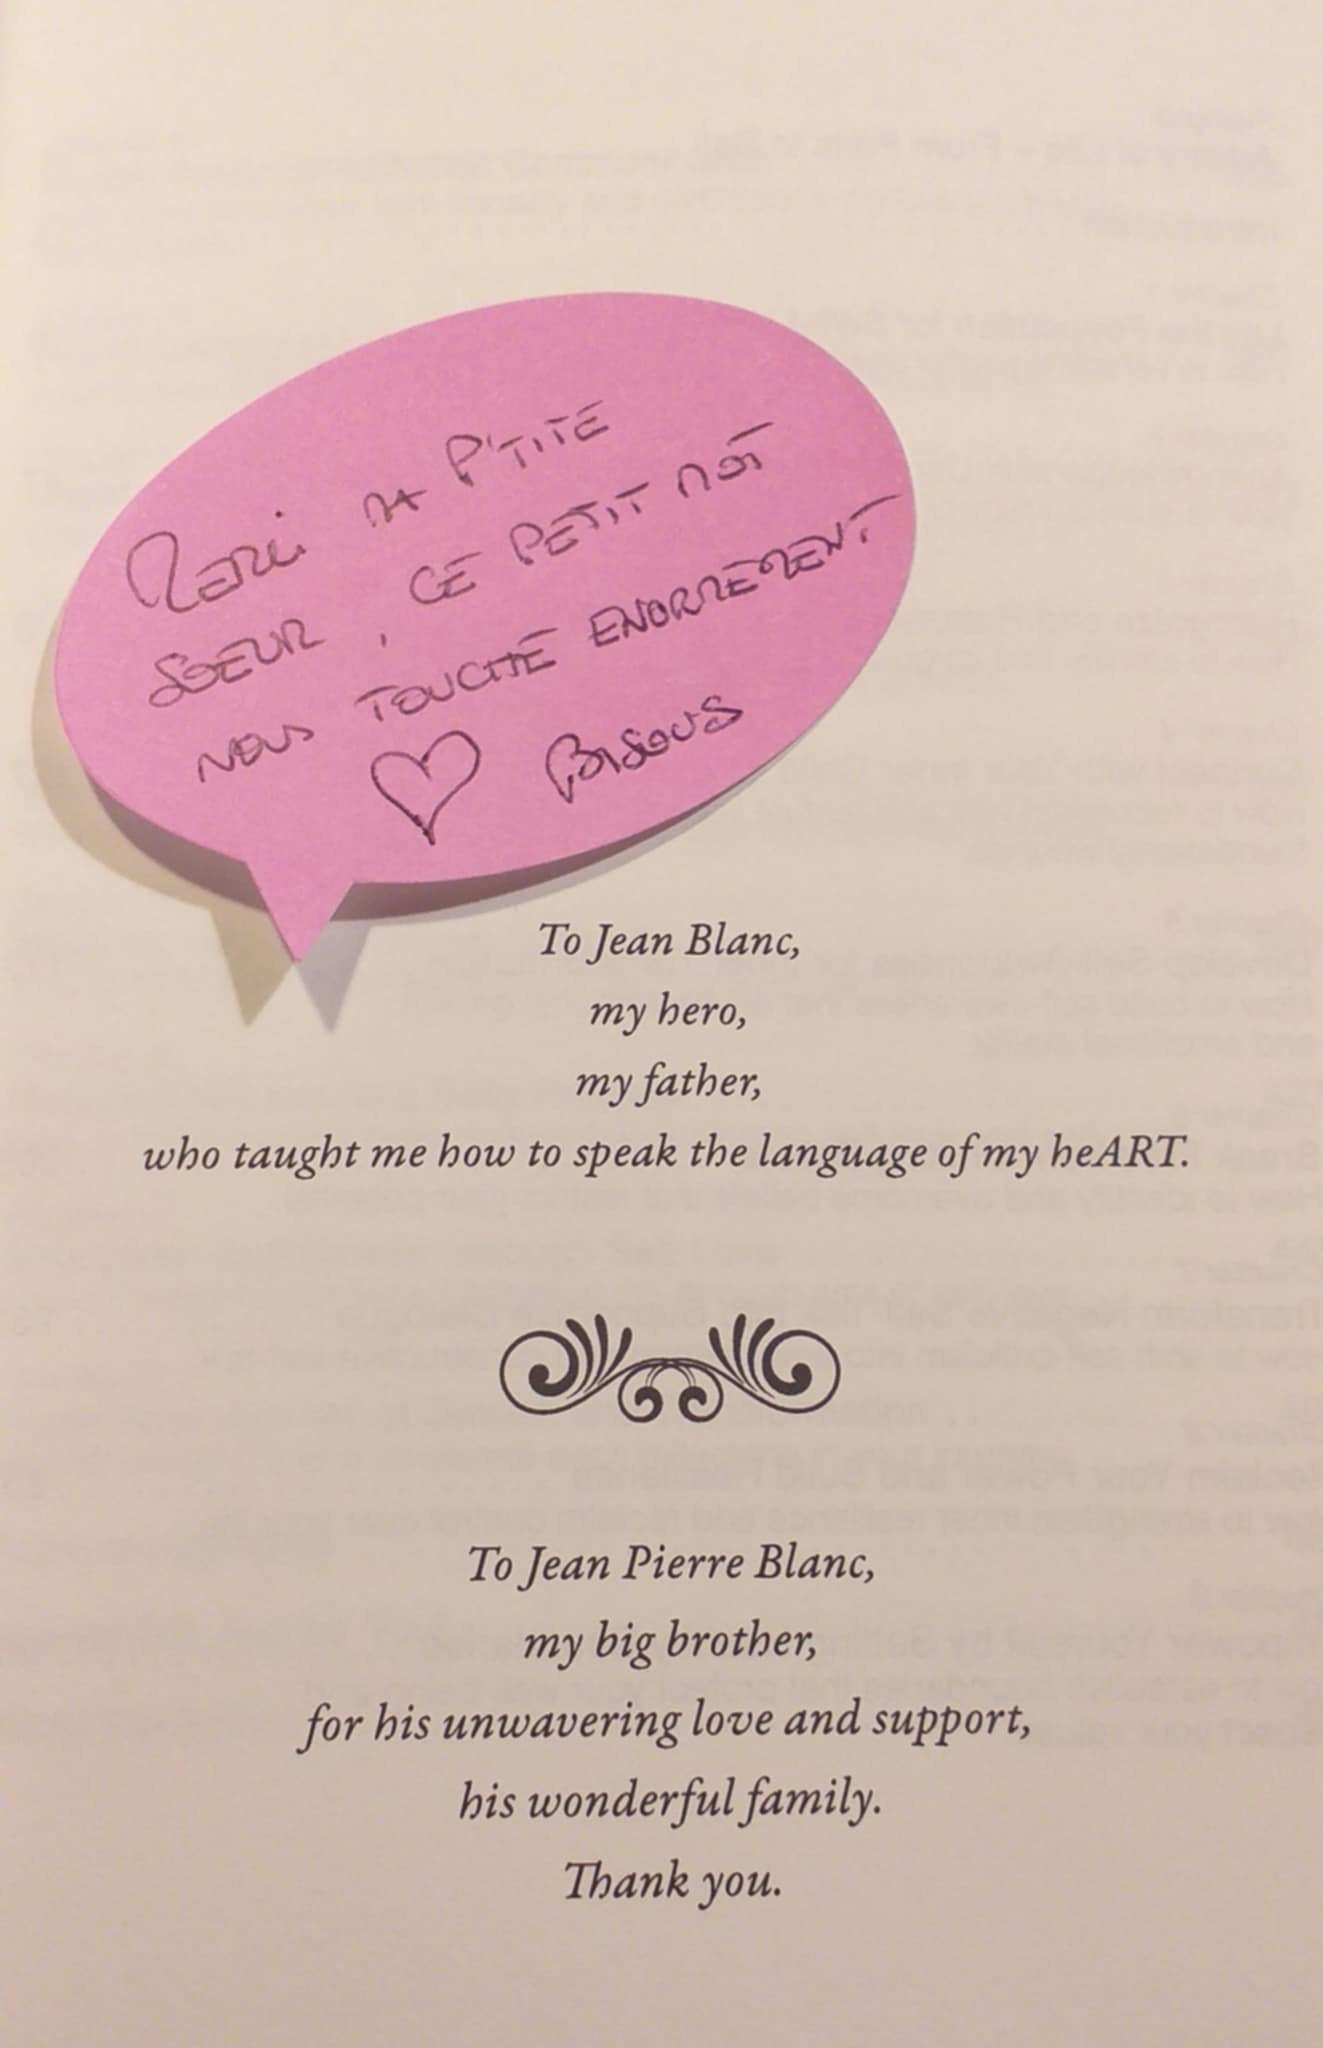 MERCI MA P'TITE
SOEUR, CE PETIT MOT
NOUS TOUCHE ENORMEMENT
BISOUS
To Jean Blanc,
my hero,
my father,
who taught me how to speak the language of my heART.
To Jean Pierre Blanc,
my big brother,
for his unwavering love and support,
his wonderful family.
Thank you.